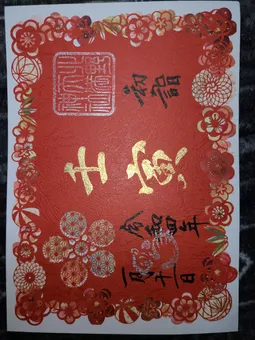 初詣
壬寅
令和四年
一月十一日